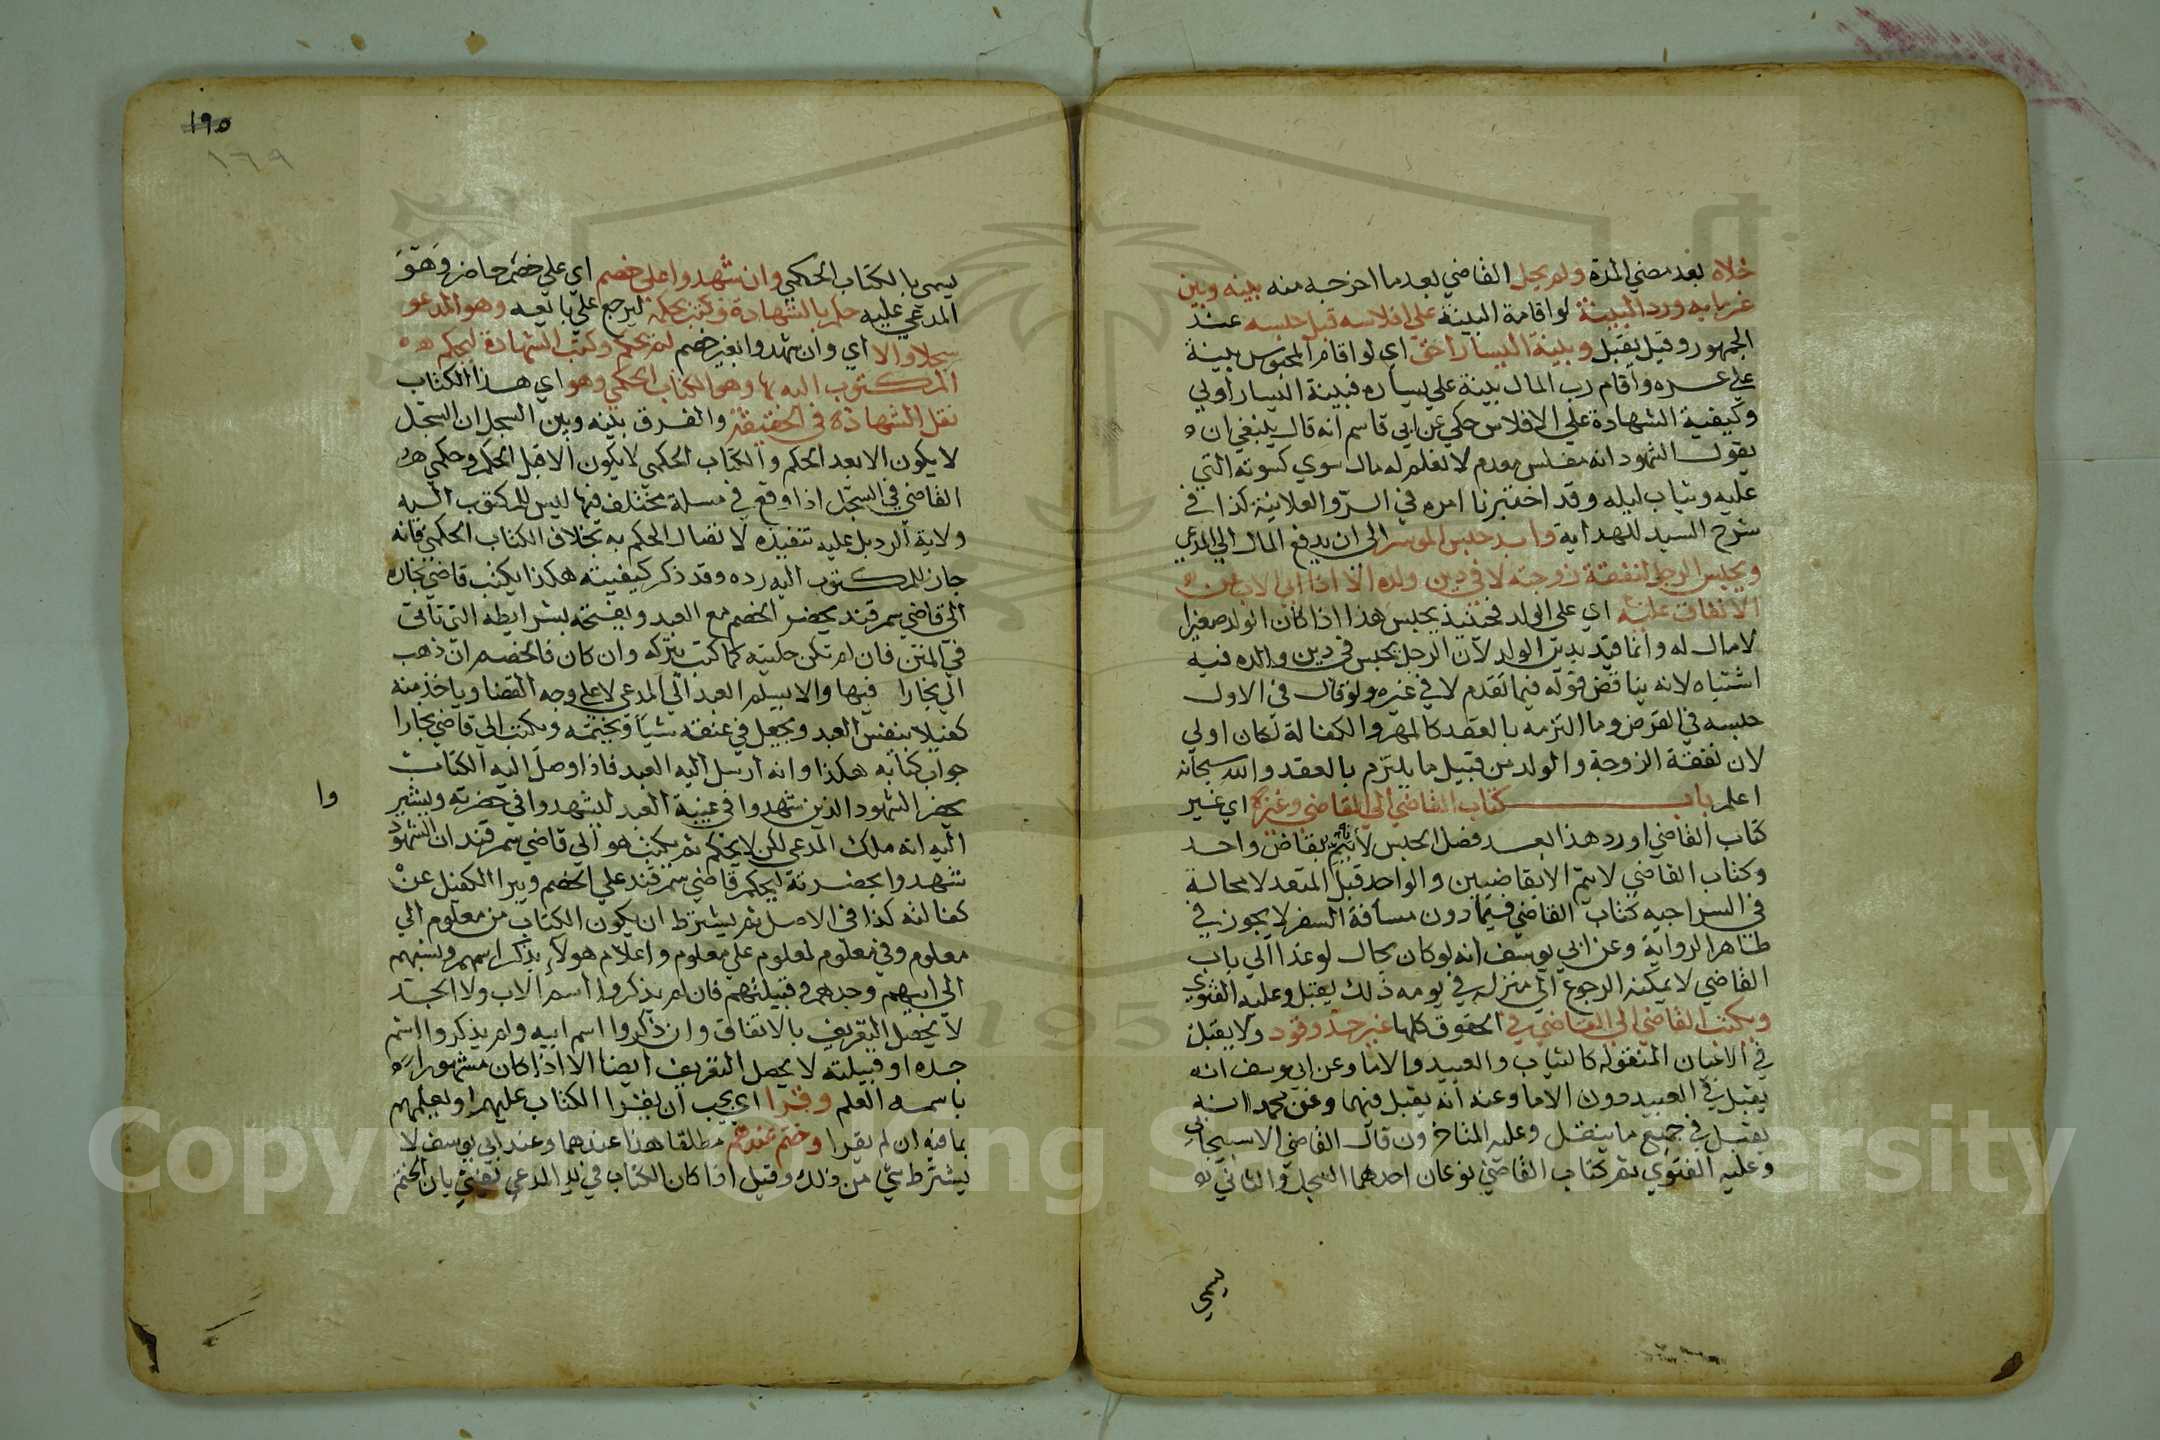 خلاه بعد مضي المدة ولم يحل القاضي بعد ما اخرجه منه بينه وبين
غرمايه ورد البينة لو اقامة البينة على افلاسه قبل حبسه عند
الجمهور وقيل يقبل وبينة اليسار احق اي لو اقام المحبوس بينة
على عسره واقام رب المال بينة علي يساره فبينة اليسار اولي
وكيفية الشهادة علي الافلاس حكي عن ابي قاسم انه قال ينبغي ان
يقول الشهود انه مفلس معدم لا نعلم له مال سوي كسوته التي
عليه وثياب ليله وقد اختبرنا امره في السر والعلانية كذا في
شرح السيد للهداية وابد حبس الموسر الى ان يدفع المال الي المدعي
ويحبس الرجل لنفقة زوجته لا في دين ولده الا اذا ابي الاب من
الانفاق عليه اي على الولد فحينيذ يحبس هذا اذا كان الولد صغيرا
لا مال له وانما قيد بدين الولد لان الرجل يحبس في دين والده فيه
اشتباه لانه يناقض قوله فيما تقدم لا في غيره ولو قال في الاول
حبسه في القرض وما التزمه بالعقد كالمهر والكفالة لكان اولي
لان نفقة الزوجة والولد من قبيل ما يلتزم بالعقد والله سبحانه
اعلم باب كتاب القاضي الي القاضي وغيره اي غير
كتاب القاضي اورد هذا بعد فصل الحبس لانه يتم بقاض واحد
وكتاب القاضي لا يتم الا بقاضيين والواحد قبل المتعدد لا محالة
في السراجيه كتاب القاضي فيما دون مسافة السفر لا يجوز في
ظاهر الرواية وعن ابي يوسف انه لو كان بحال لو غدا الي باب
القاضي لا يمكنه الرجوع الي منزله في يومه ذلك يقبل وعليه الفتوي
ويكتب القاضي الي القاضي في الحقوق كلها غير حد وقود ولا يقبل
في الاعيان المنقوله كالثياب والعبيد والاما وعن ابي يوسف انه
يقبل في العبيد دون الاما وعنه انه يقبل فيهما وعن محمد انه
يقبل في جميع ما ينقل وعليه المتاخرون قال القاضي الاسبيجابي
وعليه الفتوي ثم كتاب القاضي نوعان احدهما السجل والثاني
يسمي
١٩٥
١٦٩
يسمي بالكتاب الحكمي وان شهدوا على خصم اي علي خصم حاضر وهو
المدعي عليه حكم بالشهادة وكتب بحكمه ليرجع علي بايعه وهو المدعو
سجلا والا اي وان شهدوا بغير خصم لم يحكم وكتب الشهادة ليحكم
المكتوب اليه بها وهو الكتاب الحكمي وهو اي هذا الكتاب
نقل الشهادة في الحقيقة والفرق بينه وبين السجل ان السجل
لا يكون الا بعد الحكم والكتاب الحكمي لا يكون الا قبل الحكم وحكمي هو
القاضي في السجل اذا وقع في مسلة مختلف فيها ليس للمكتوب اليه
ولاية الرد بل عليه تنفيذه لاتصال الحكم به بخلاف الكتاب الحكمي فانه
جاز للمكتوب اليه رده وقد ذكر كيفيته هكذا يكتب قاضي بخاره
الى قاضي سمرقند يحضر الخصم مع العبد ويفتحه بشرايطه التي تاتي
في المتن فان لم تكن حليته كما كتب يتركه وان كان فالخصم ان ذهب
الي بخارا فبها والا يسلم العبد الي المدعي لا على وجه القضا وياخذ منه
كفيلا بنفس العبد ويجعل في عنقه شيا ويختمه ويكتب الي قاضي بخارا
جواب كتابه هكذا وانه ارسل اليه العبد فاذا وصل اليه الكتاب
يحضر الشهود الذين شهدوا في غيبة العبد ليشهدوا في حضرته ويشير
وا
اليه انه ملك المدعي لكن لا يحكم ثم يكتب هو الي قاضي سمرقند ان الشهود
شهدوا بحضرته ليحكم قاضي سمرقند علي الخصم ويبرا الكفيل عن
كفالته كذا في الاصل ثم يشترط ان يكون الكتاب من معلوم الي
معلوم وفي معلوم لمعلوم علي معلوم واعلام هولاء بذكر اسمهم ونسبهم
الي ابيهم وجدهم وقبيلتهم فان لم يذكروا اسم الاب ولا الجد
لا يحصل التعريف بالاتفاق وان ذكروا اسم ابيه ولم يذكروا اسم
جده او قبيلته لا يحصل التعريف ايضا الا اذا كان مشهورا
باسمه العلم وقرا اي يجب ان يقرا الكتاب عليهم او يعلمهم
بما فيه ان لم يقرا وختم عندهم مطلقا هذا عندهما وعند ابي يوسف لا
يشترط شي من ذلك وقيل اذا كان الكتاب في يد المدعي يفتي بان الختم